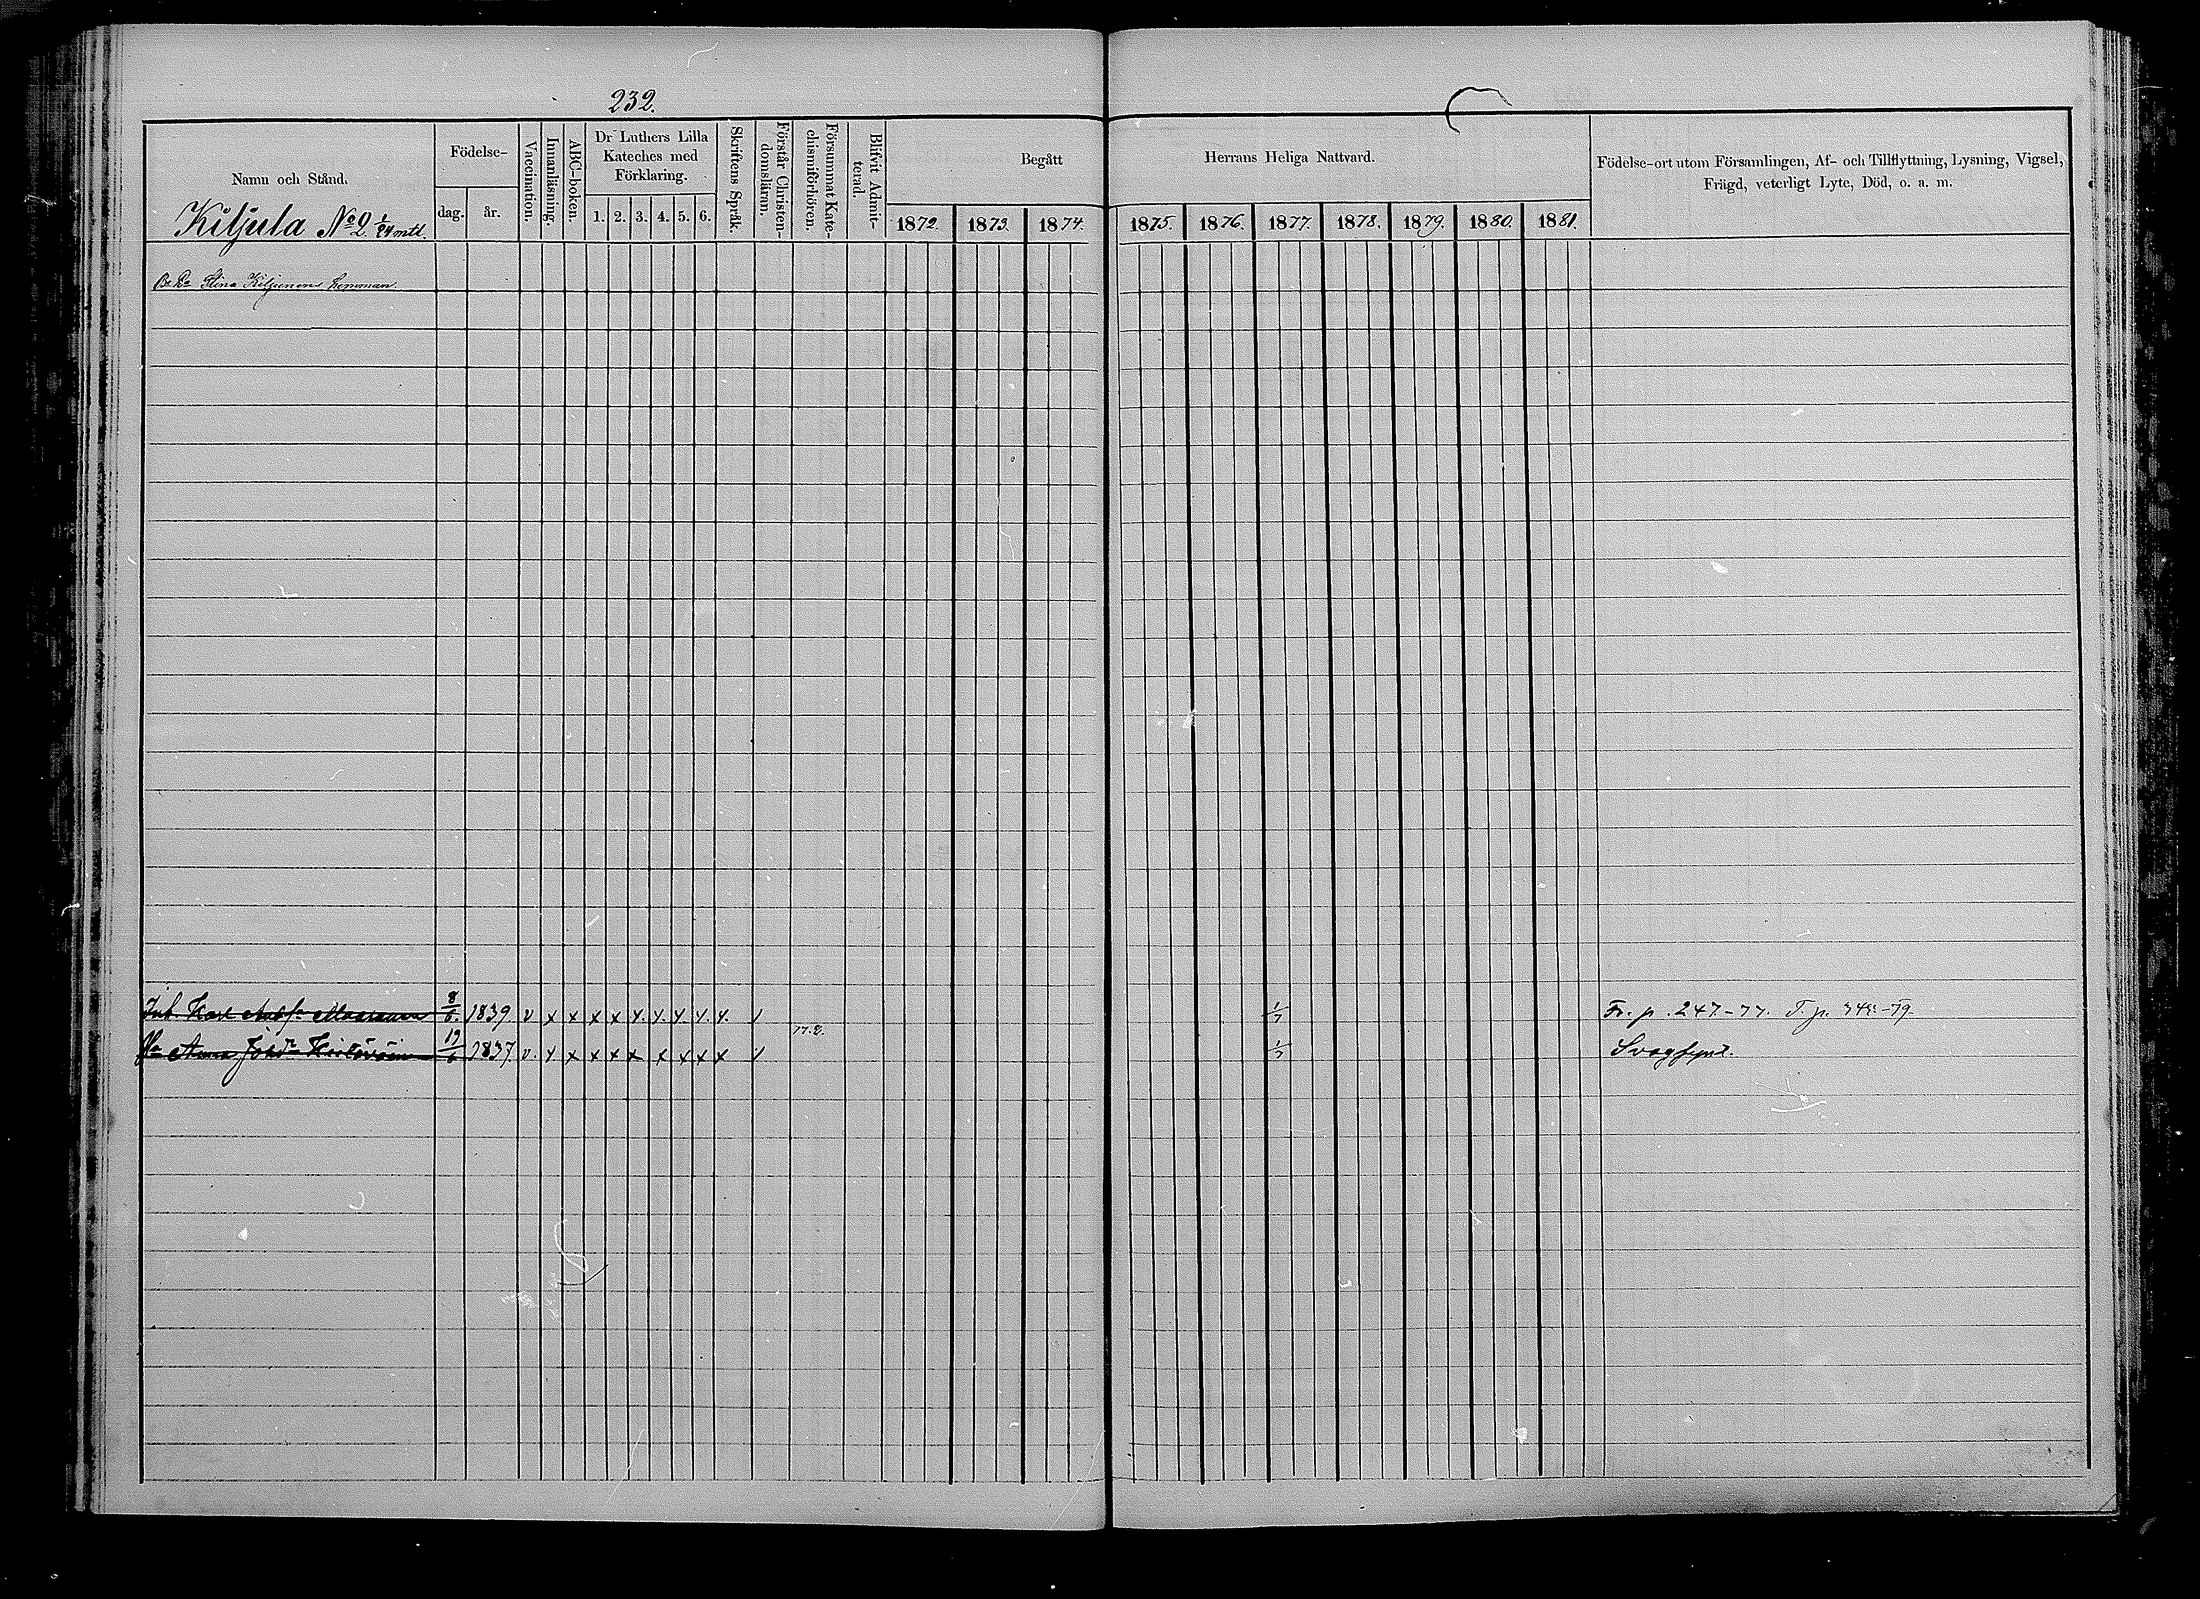 232.
Namn och Stånd.
Födelse-
dag.
år.
Vaccination.
Innanläsning.
ABC-boken.
Dr Luthers Lilla
Kateches med
Förklaring.
1. 2. 3. 4. 5. 6.
Skriftens Språk.
Förstår Christen-
domsläran.
Försummat Kate-
chismiförhören.
Blifvit Admit-
terad.
Begått
Herrans Heliga Nattvard.
1872. 1873. 1874. 1875. 1876. 1877. 1878. 1879. 1880. 1881.
Födelse-ort utom Församlingen, Af- och Tillflyttning, Lysning, Vigsel,
Frägd, veterligt Lyte, Död, o. a. m.
Kiljula No 2. 1/24 mtl.
Stina Kiljunens hemman.
Inh. Karl 8/6. 1839. v x x x x x x x x x 1/7 Fr. p. 247-77. T. p.
77.2.
Anna Johsdr 19/6 1837. v. x x x x x x x x x 1/7 Svagsynt.